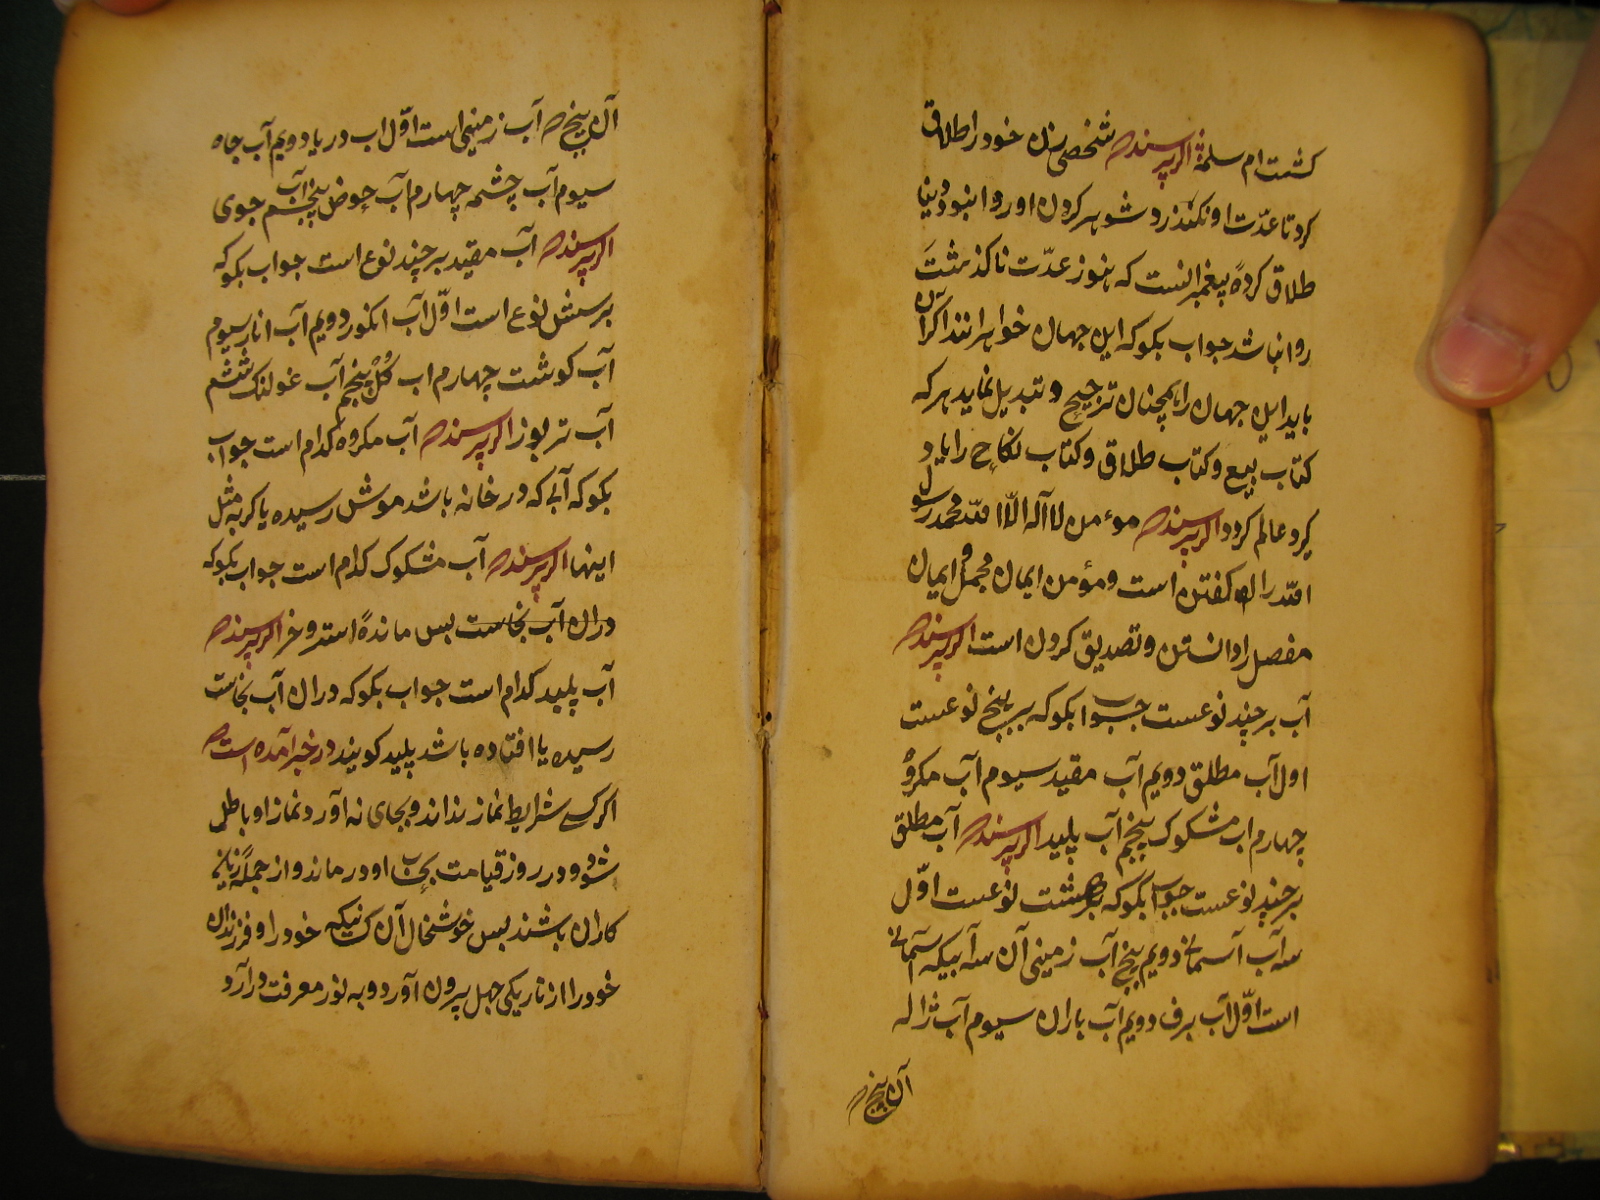 کشت ام سلمة اکر پرسند که شخصی زن خود را طلاق
کرد تا عدّت او نکذرد شوهر کردن او روا نبود
طلاق کرده پیغمبر انست که هنوز عدّت ناکذشت
روا نباشد جواب بکو که این جهان خواهرانند اکر آن
باید این جهان را همچنان ترجیح و تبدیل نماید هر که
کتاب بیع و کتاب طلاق و کتاب نکاح را یاد
کیرد عالم کردد اکر پرسند که مؤمن لا اله الّا الله محمد رسول
الله را گفتن است و مؤمن ایمان مجمل و ایمان
مفصل را دانستن و تصدیق کردن است اکر پرسند که
آب بر چند نوعست جواب بکو که بر پنج نوعست
اول آب مطلق دویم آب مقید سیوم آب مکروه
چهارم اب مشکوک پنجم آب پلید اکر پرسند که آب مطلق
بر چند نوعست جواب بکو که بر هشت نوعست اوّل
سه آب آسمانی دویم پنج آب زمینی آن سه آبیکه آسمانی
است اوّل آب برف دویم آب باران سیوم آب ژاله
آن پنج که
آن پنج که آب زمینی است اوّل اب دریا دویم آب چاه
سیوم آب چشمه چهارم آب حوض پنجم آب جوی
اکر پرسند که آب مقید بر چند نوع است جواب بکو که
بر شش نوع است اوّل آب انکور دویم آب انار سیوم
آب کوشت چهارم اب کُل پنجم آب غولنک ششم
آب تربوز اکر پرسند که آب مکروه کدام است جواب
بکو که آبی که در خانه باشد موش رسیده یا کربه مثل
اینها اکر پرسند که آب مشکوک کدام است جواب بکو که
دران آب نجاست پس ماندهٔ استر و خر اکر پرسند که
آب پلید کدام است جواب بکو که دران آب نجاست
رسیده یا افتاده باشد پلید کویند در خبر آمده است که
اکر کسی شرایط نماز نداند و بجای نه آورد نماز او باطل
شود و در روز قیامت او در ماند و از جملهٔ زیان
کاران باشند پس خوشحال آن کسانیکه خود را و فرزندان
خود را از تاریکی جهل بیرون آورد و به نور معرفت در آرد